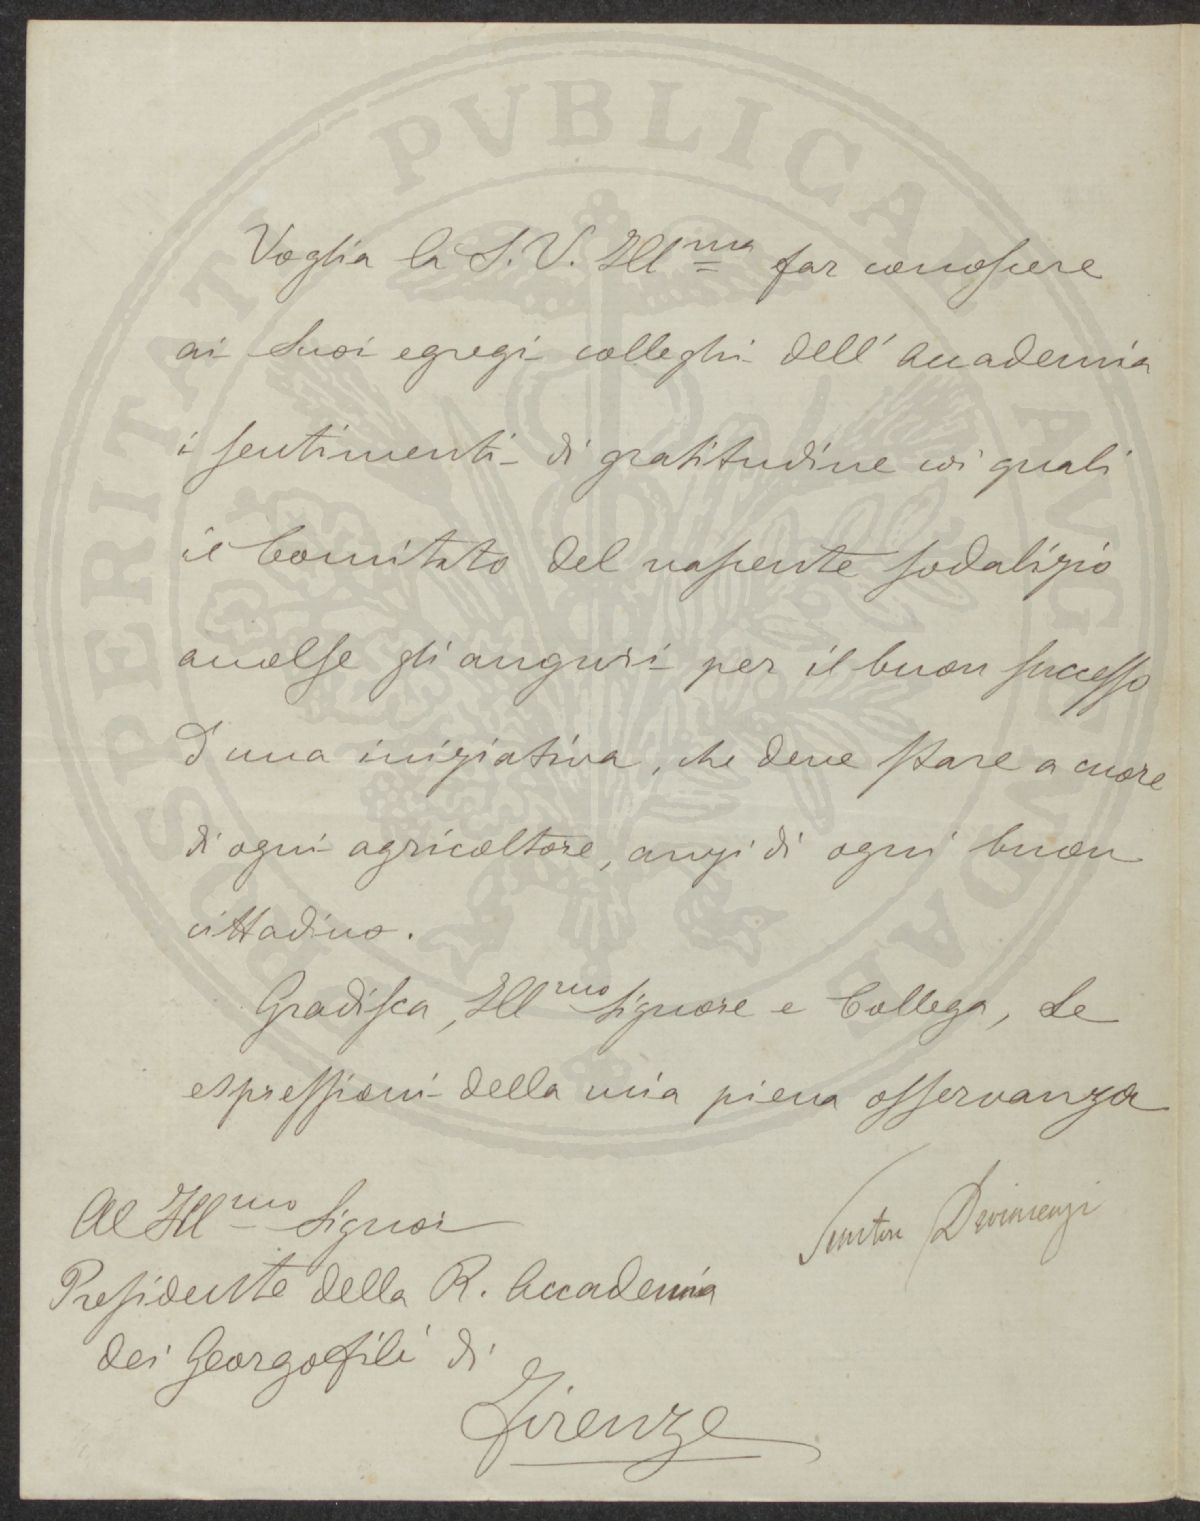 PROSPERITATI PVBLICAE AVGENDAE
Voglia la S. V. Ill.ma far conoscere
ai suoi egregi colleghi dell' Accademia
i sentimenti di gratitudine coi quali
il Comitato del nascente sodalizio
accolse gli auguri per il buon successo
d'una iniziativa, che deve stare a cuore
di ogni agricoltore, anzi di ogni buon
cittadino.
Gradisca, Ill.mo Signore e Collega, le
espressioni della mia piena osservanza
Senatore Devincenzi
Al Ill.mo Signor
Presidente della R. Accademia
dei Georgofili di
Firenze